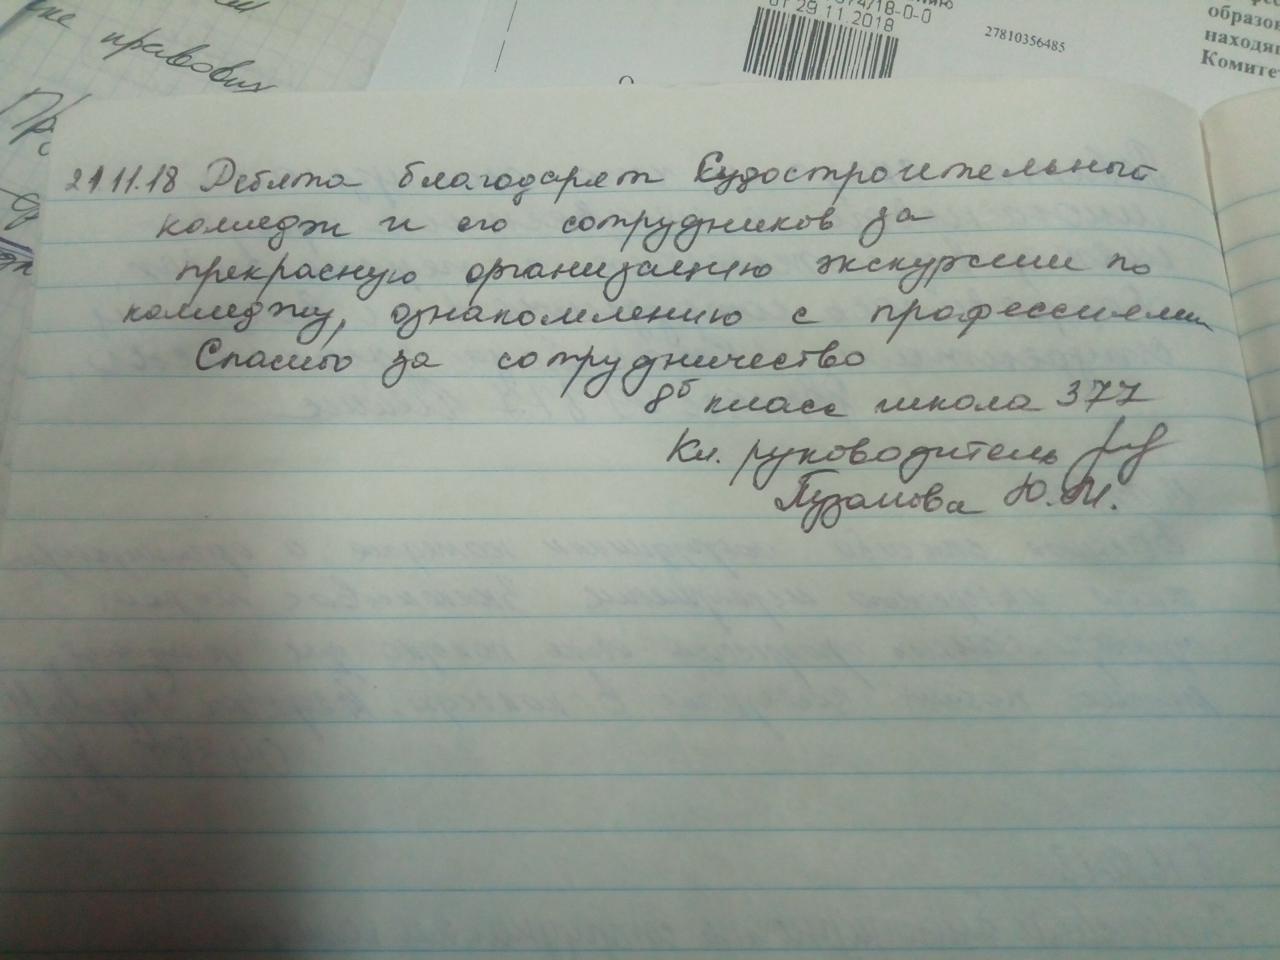 правових
674/18-0-0
от 29.11.2018
27810356485
образов
находящ
Комитет
21.11.18 Ребята благодарят Судостроительный
колледж и его сотрудников за
прекрасную организацию экскурсии по
колледжу, ознакомлению с профессиями
Спасибо за сотрудничество
8б класс школа 377
Кл. руководитель
Пузанова Ю.М.